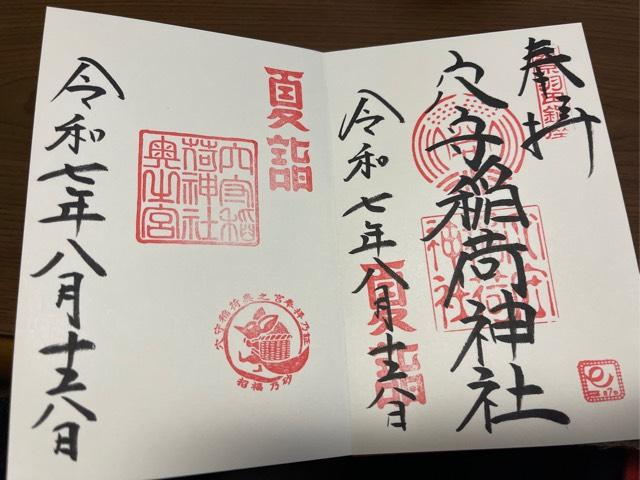 奉拝
穴守稲荷神社
令和七年八月十六日
夏詣
夏詣
穴守稲
荷神社
奥之宮
穴守稲荷奥之宮参拝乃証
招福乃砂
令和七年八月十六日